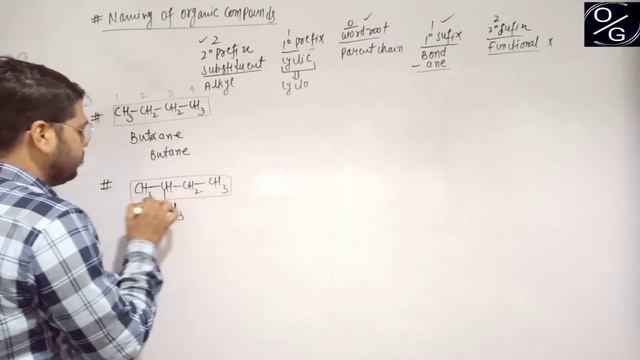 # Naming of organic compounds
✓ 2
2° prefix
substituent
Alkyl
1
1° prefix
cyclic
cyclo
0 ✓
wordroot
Parent chain
1 ✓
1° sufix
Bond
- ane
2
2° sufix
Functional x
O/G
1 2 3 4
# CH3-CH2-CH2-CH3
Butane
Butane
# CH3-CH-CH2-CH3